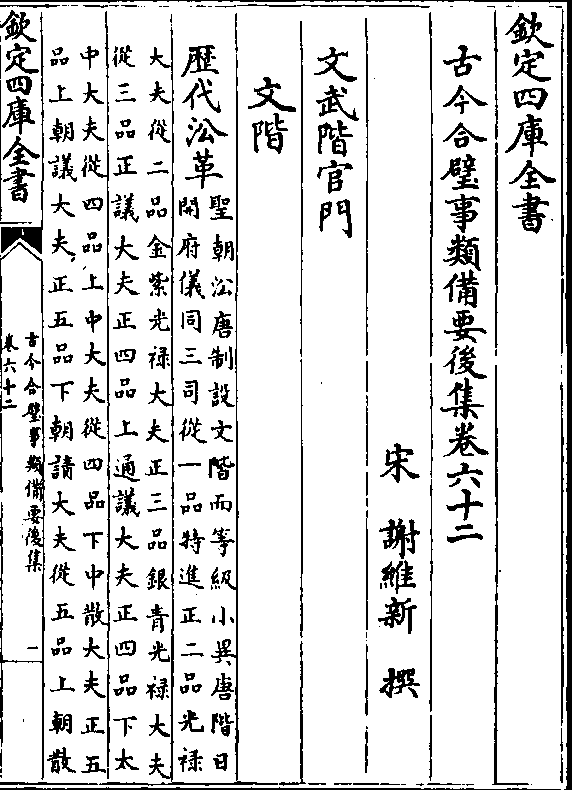 欽定四庫全書
古今合璧事類備要後集卷六十二
宋 謝維新 撰
文武階官門
文階
歴代㳂革
聖朝㳂唐制設文階而等級小異唐階曰
開府儀同三司從一品特進正二品光禄
大夫從二品金紫光禄大夫正三品銀青光禄大夫
從三品正議大夫正四品上通議大夫正四品下太
中大夫從四品上中大夫從四品下中散大夫正五
品上朝議大夫正五品下朝請大夫從五品上朝散
欽定四庫全書
古今合璧事類備要後集
卷六十二
一